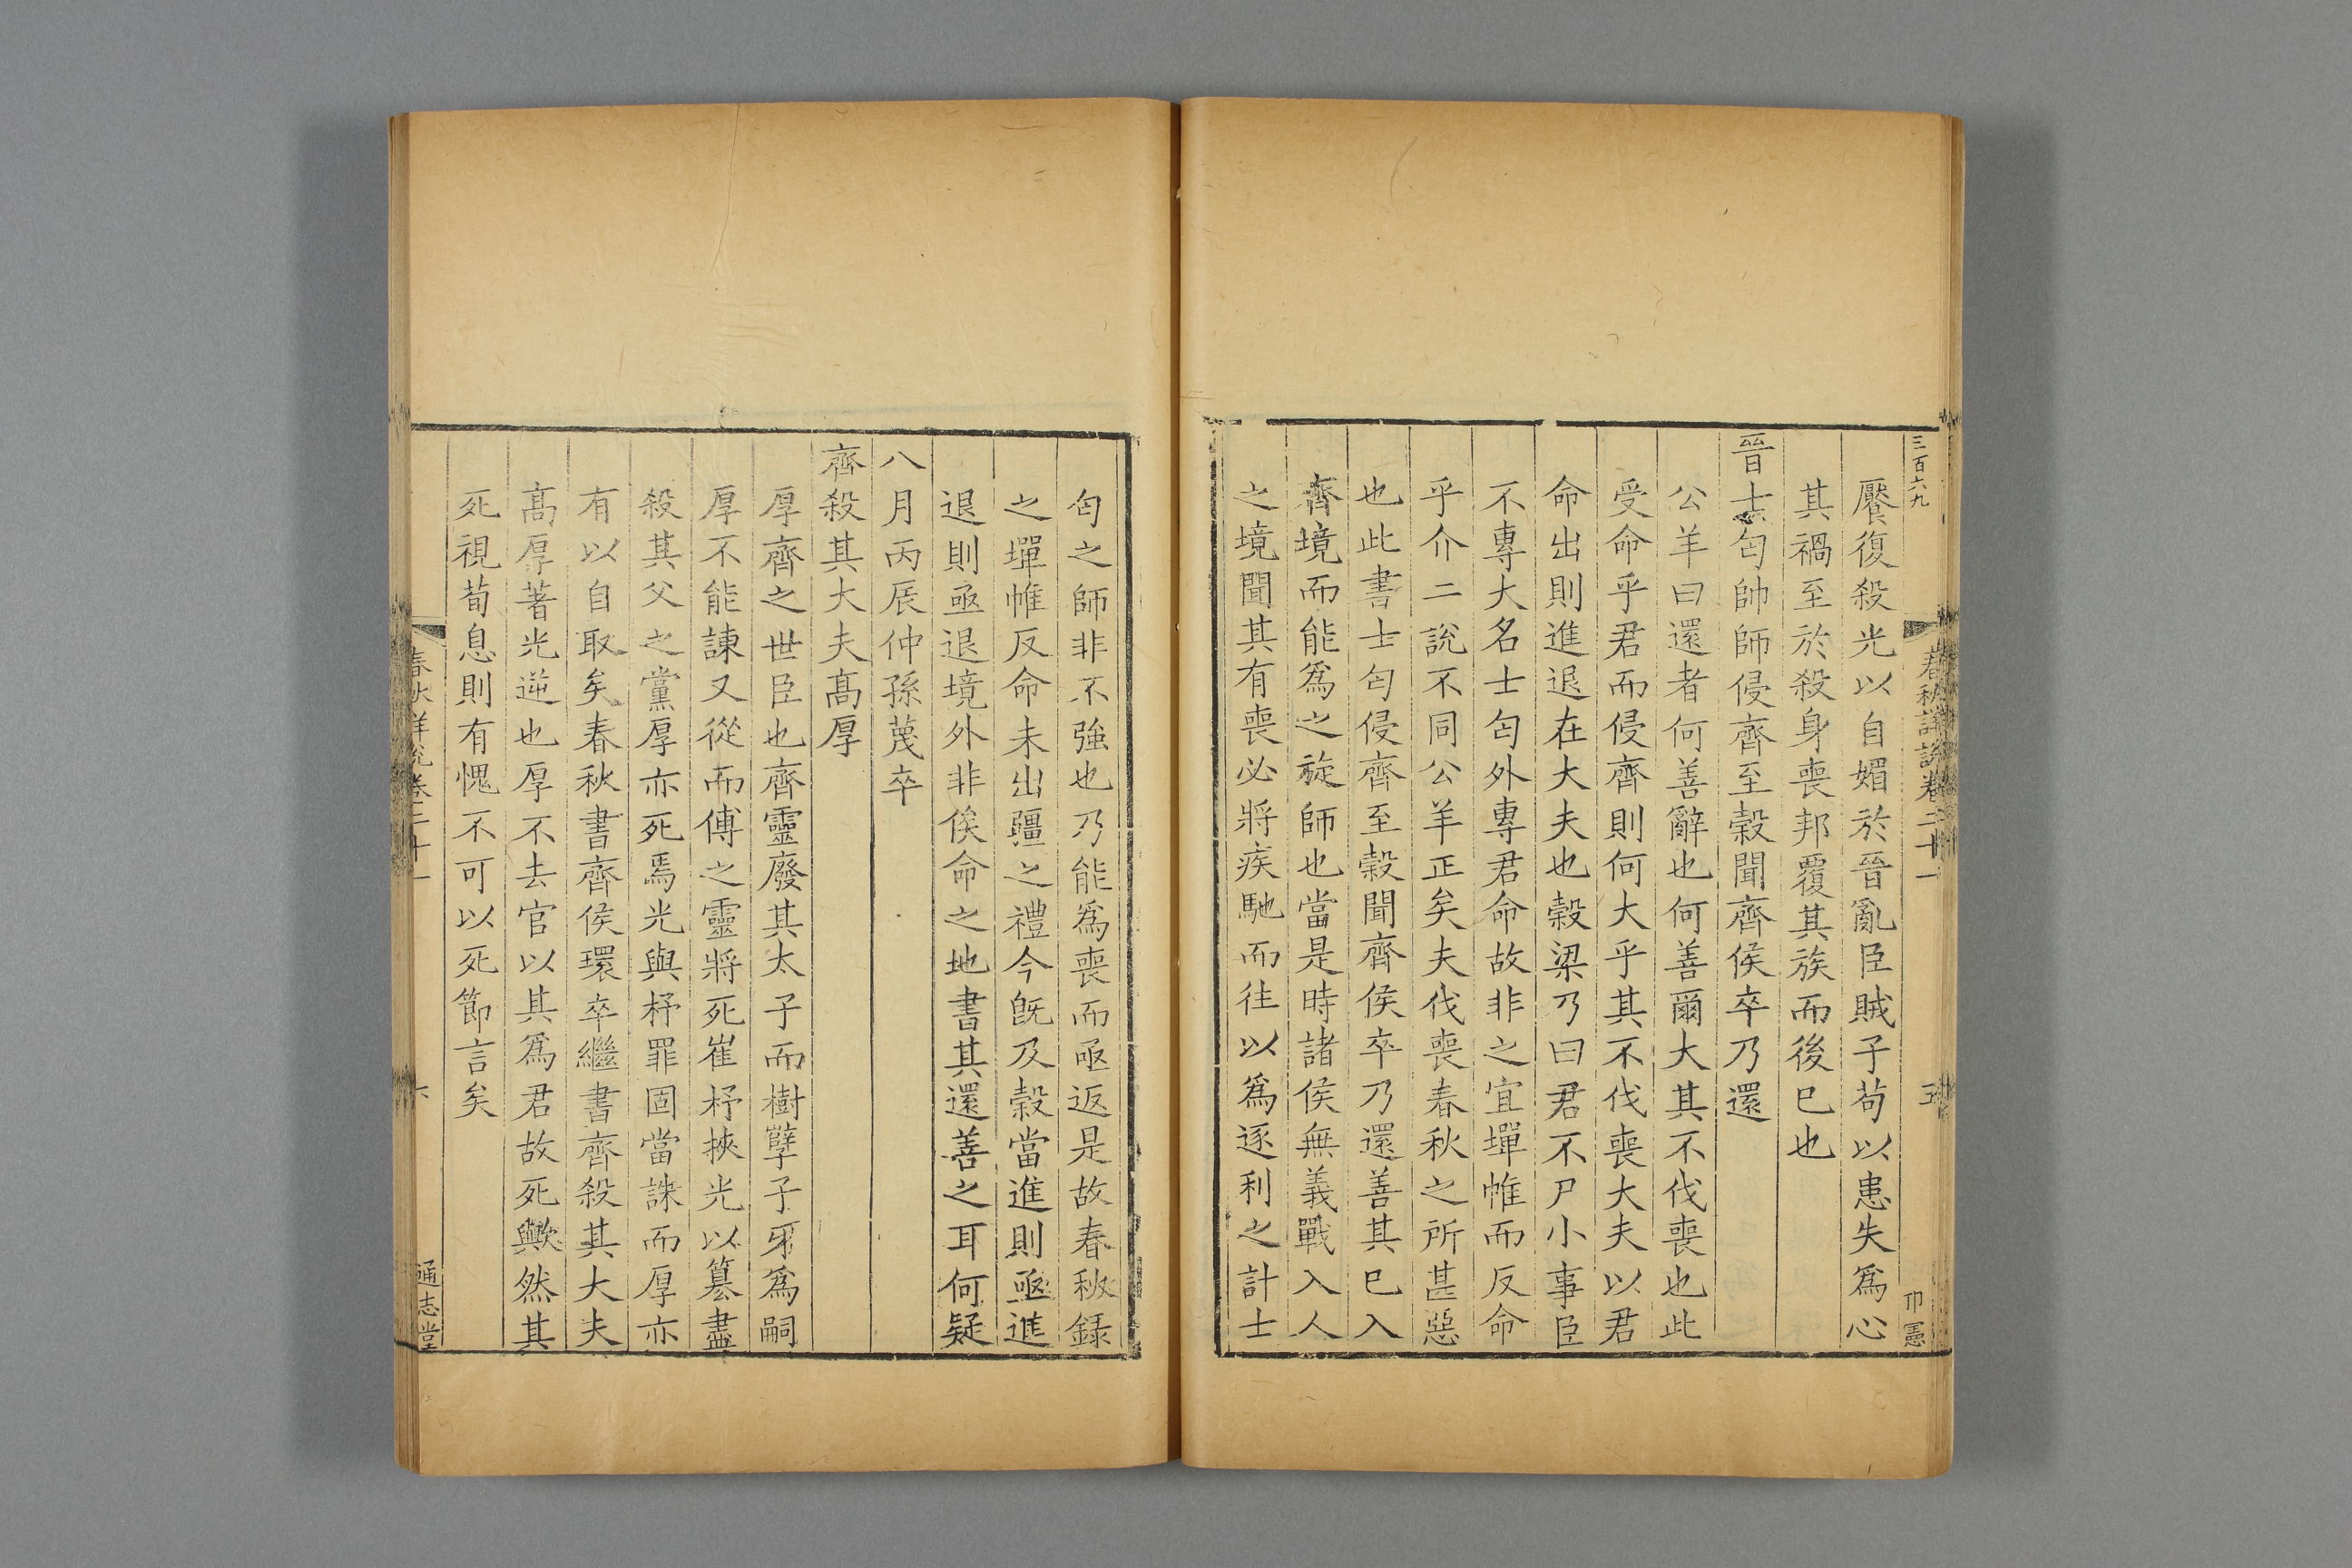 三百六九
春秋詳說卷二十一
五
卬憲
饜復殺光以自媚於晉亂臣賊子苟以患失爲心
其禍至於殺身喪邦覆其族而後已也
晉士匄帥師侵齊至穀聞齊侯卒乃還
公羊曰還者何善辭也何善爾大其不伐喪也此
受命乎君而侵齊則何大乎其不伐喪大夫以君
命出則進退在大夫也穀梁乃曰君不尸小事臣
不專大名士匄外專君命故非之宜墠帷而反命
乎介二說不同公羊正矣夫伐喪春秋之所甚惡
也此書士匄侵齊至穀聞齊侯卒乃還善其已入
齊境而能爲之旋師也當是時諸侯無義戰入人
之境聞其有喪必將疾馳而往以爲逐利之計士
匄之師非不強也乃能爲喪而亟返是故春秋錄
之墠帷反命未出疆之禮今旣及穀當進則亟進
退則亟退境外非俟命之地書其還善之耳何疑
八月丙辰仲孫蔑卒
齊殺其大夫髙厚
厚齊之世臣也齊靈廢其太子而樹孽子牙爲嗣
厚不能諫又從而傅之靈將死崔杼挾光以簒盡
殺其父之黨厚亦死焉光與杼罪固當誅而厚亦
有以自取矣春秋書齊侯環卒繼書齊殺其大夫
髙厚著光逆也厚不去官以其爲君故死歟然其
死視荀息則有愧不可以死節言矣
春秋詳說卷二十一
六
通志堂